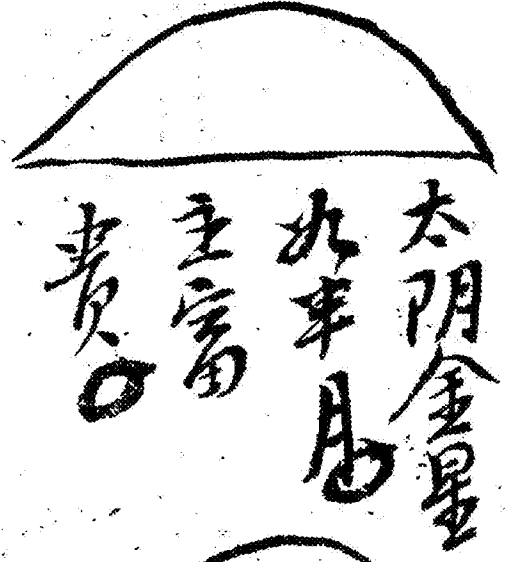 太阴金星
如半月
主富
貴